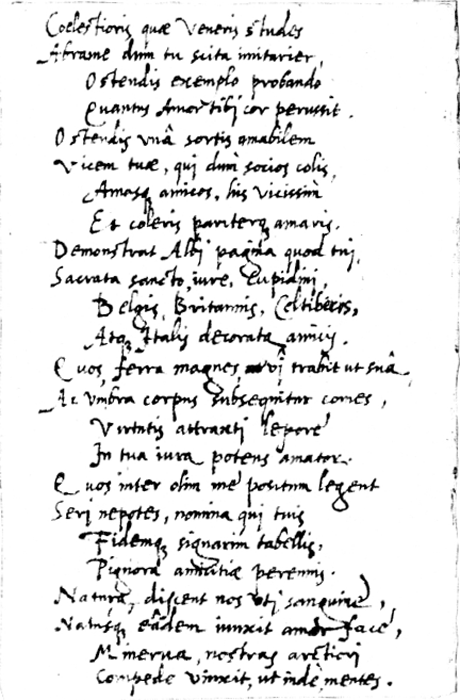 Coelestioris quæ Veneris studes
Abrame dum tu scita imitarier,
Ostendis exemplo probando
Quantus Amor tibj cor perussit.
Ostendis vnâ sortis amabilem
Vicem tuæ, qui dum socios colis,
Amasq amicos, his vicissim
Et coleris pariterq amaris.
Demonstrat Albj pagina quod tuj,
Sacrata sancto iure, Cupidini,
Belgis, Britannis, Celtiberis,
Atq Italis decorata amicis.
Quos, ferra magnes, vî trahit ut suâ,
Ac vmbra corpus subsequitur comes,
Virtutis attraxti lepore
In tua iura potens amator.
Quos inter olim me positum legent
Serj nepotes, nomina qui tuis
Fidemq signarim tabellis,
Pignora amicitiæ perennis.
Natura, discent nos vti sanguine,
Natusq eâdem iunxit amor face,
Minerua, nostras arctiori
Compede vinxit, ut inde mentes.